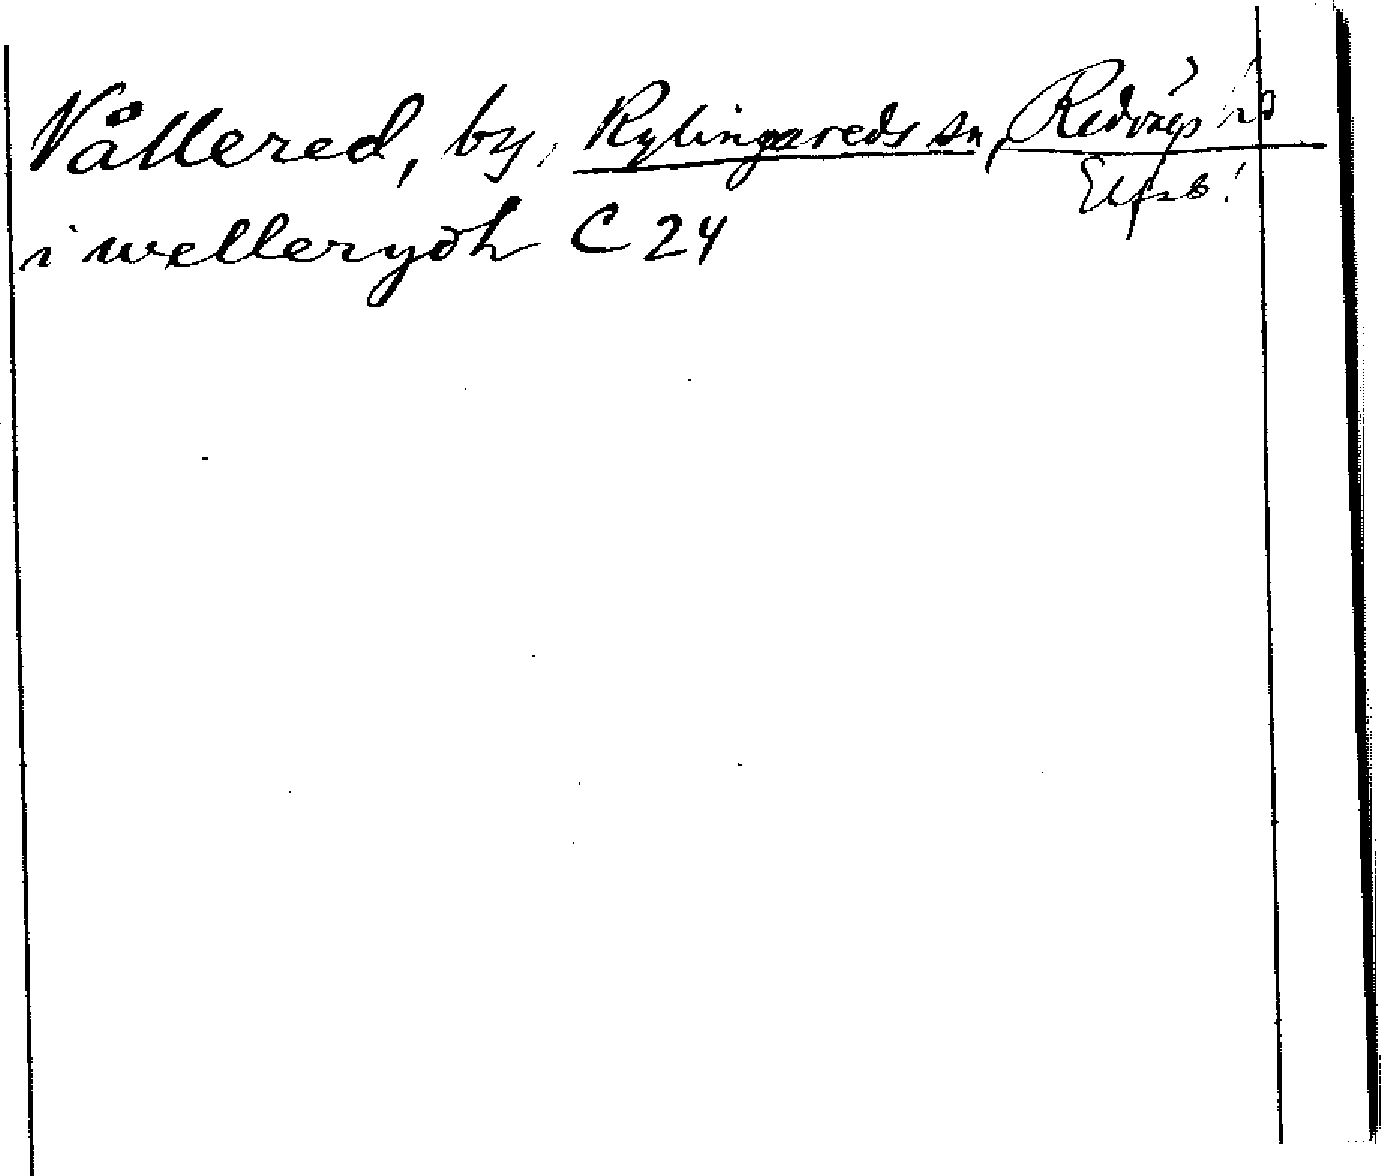 Vållered, by, Rylingareds sn, Redvägs hd
Elfsb.
i wellerydh C 24